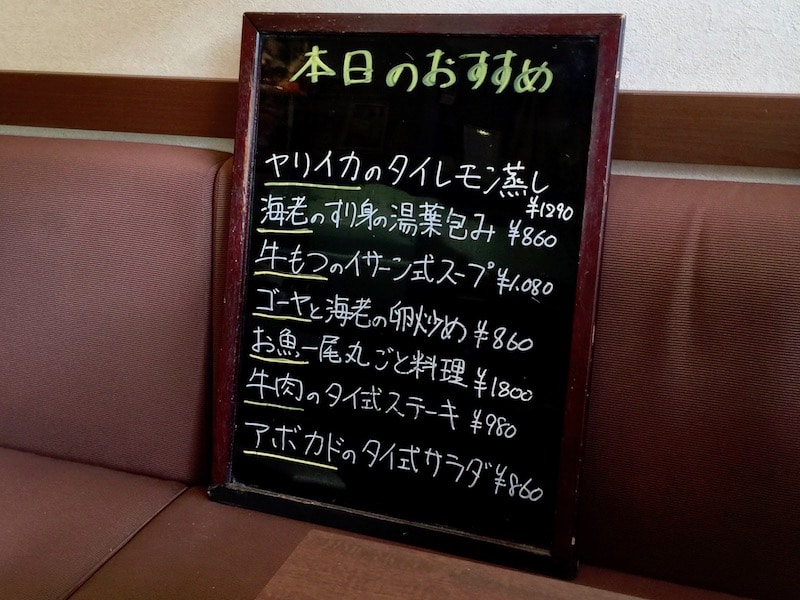 本日のおすすめ
ヤリイカのタイレモン蒸し
¥1290
海老のすり身の湯葉包み ¥860
牛もつのイサーン式スープ ¥1.080
ゴーヤと海老の卵炒め ¥860
お魚一尾丸ごと料理 ¥1800
牛肉のタイ式ステーキ ¥980
アボカドのタイ式サラダ ¥860